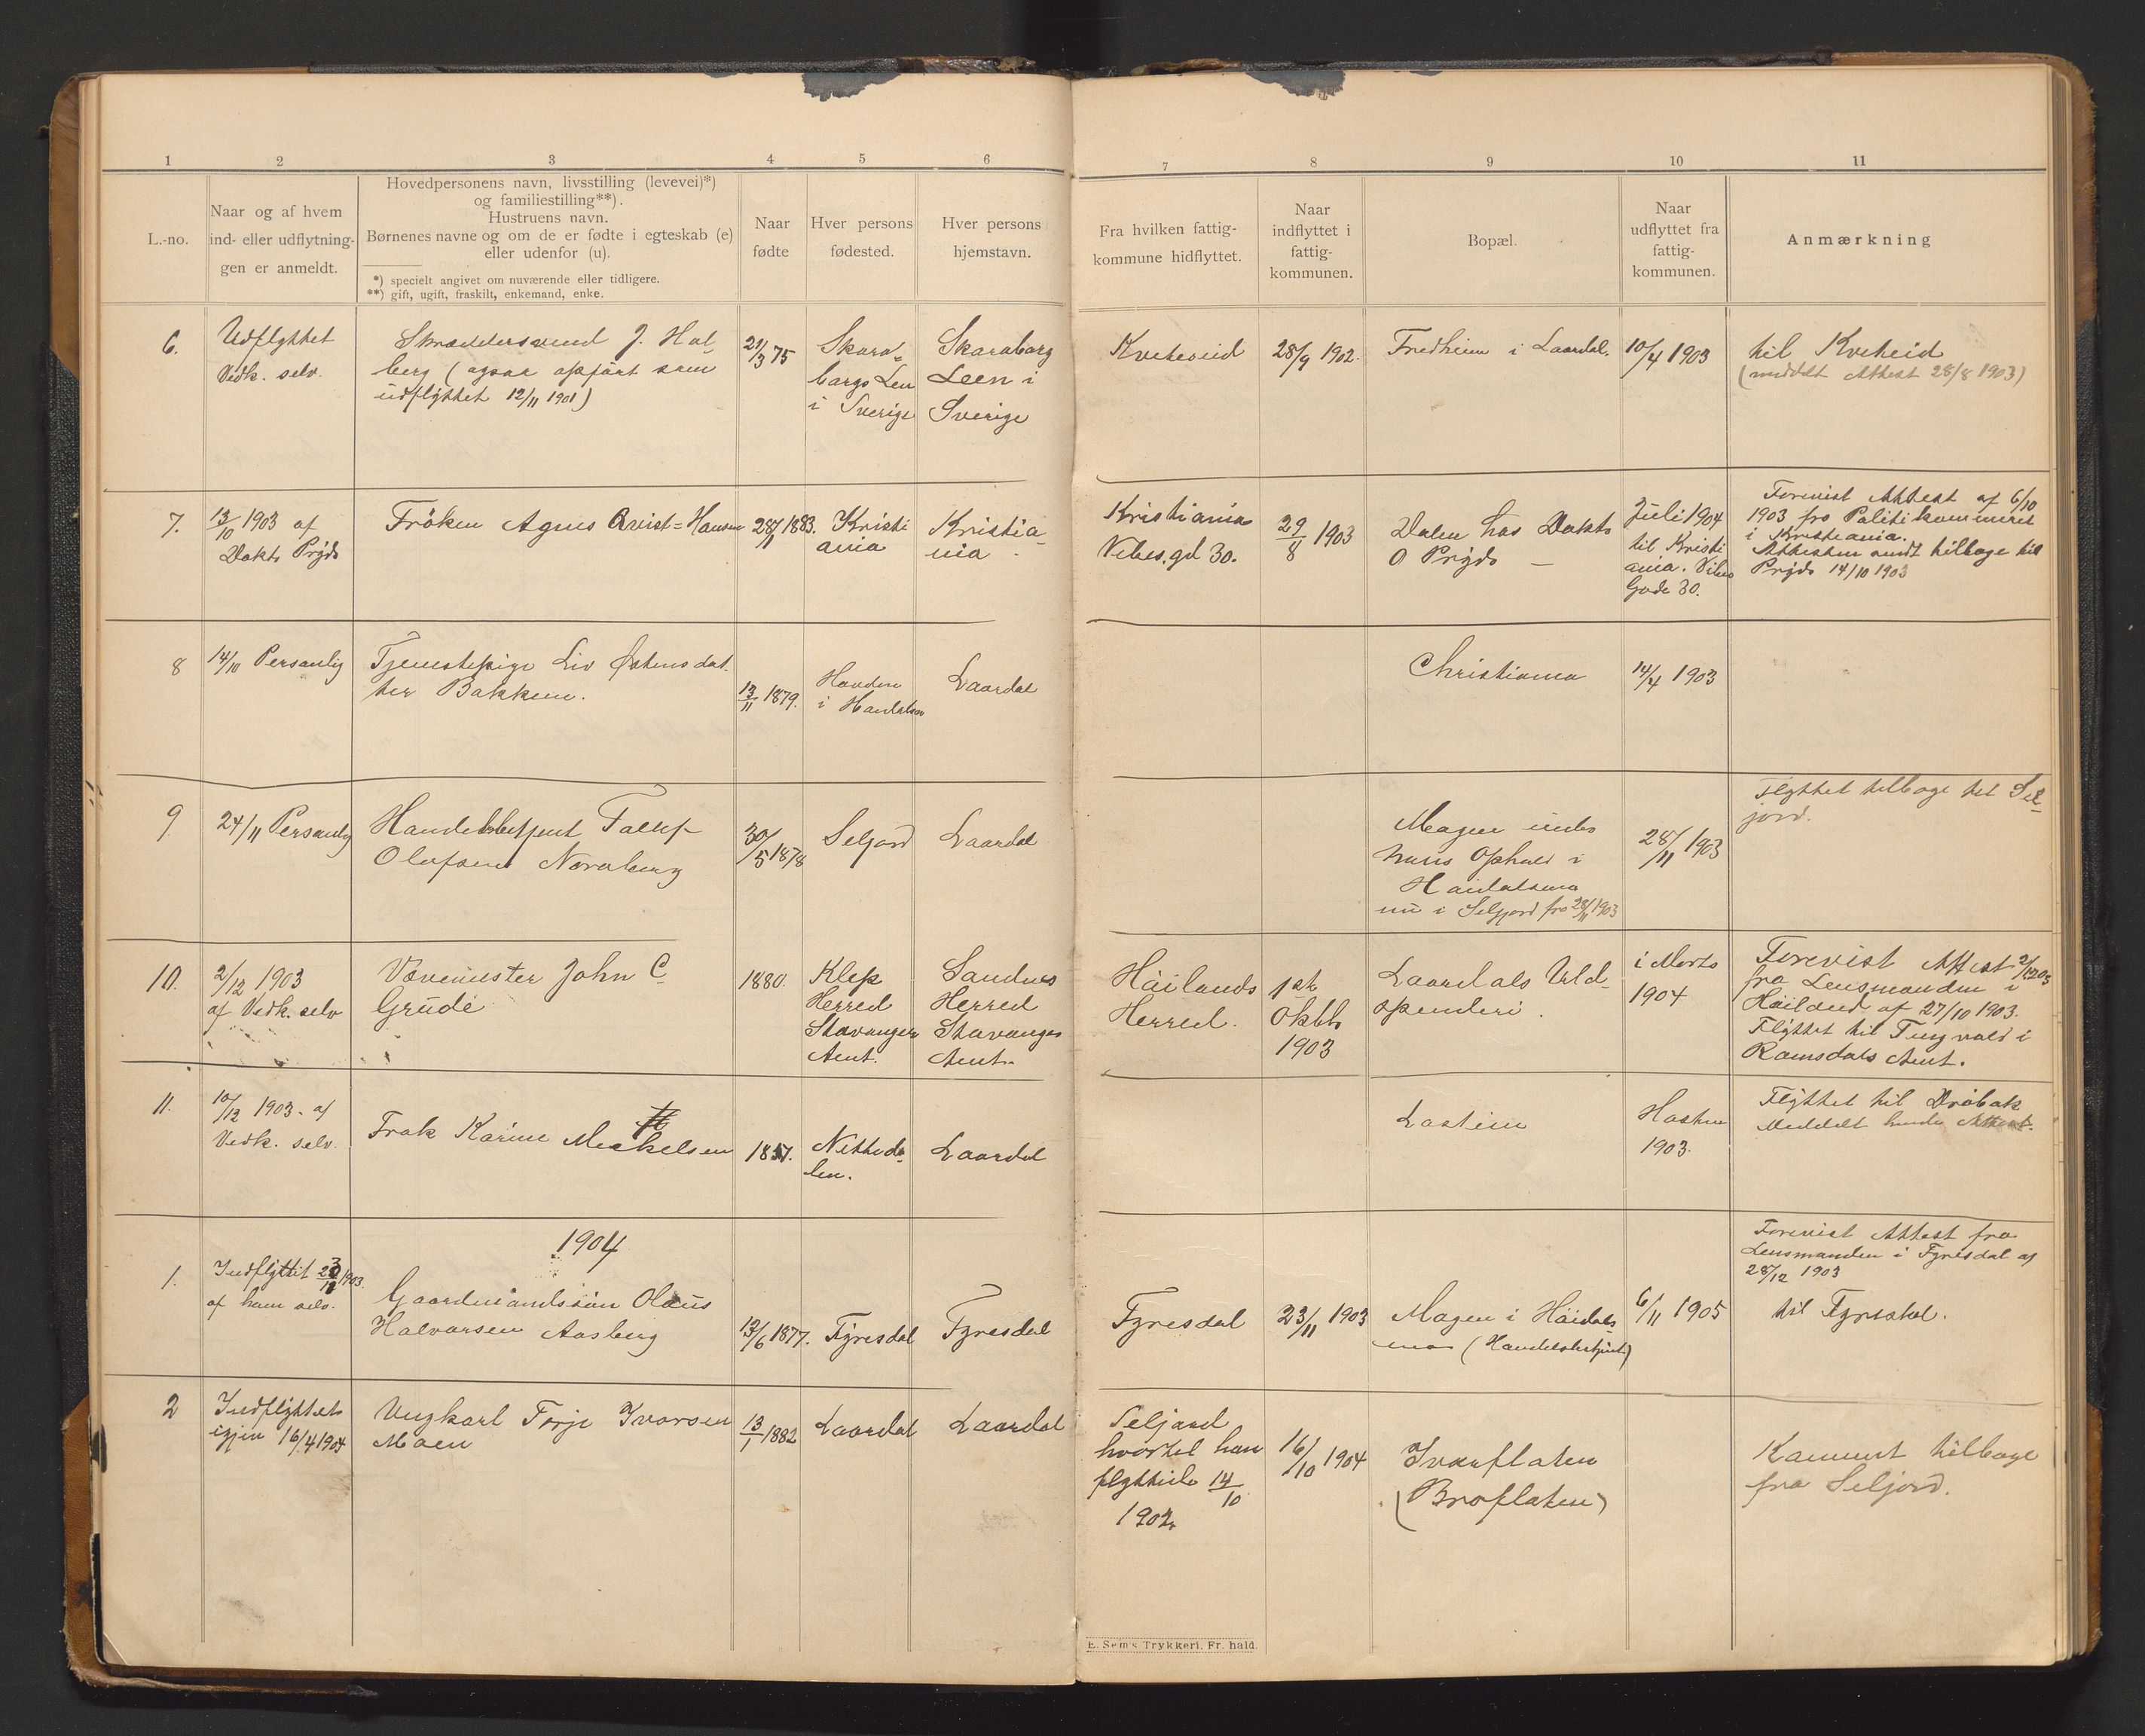 1 2 3 4 5 6 7 8 9 10 11
L.-no.
Naar og af hvem
ind- eller udflytnin-
gen er anmeldt.
Hovedpersonens navn, livsstilling (levevei)*)
og familiestilling**).
Hustruens navn.
Børnenes navne og om de er fødte i egteskab (e)
eller udenfor (u).
*) specielt angivet om nuværende eller tidligere.
**) gift, ugift, fraskilt, enkemand, enke.
Naar
fødte
Hver persons
fødested.
Hver persons
hjemstavn.
Fra hvilken fattig-
kommune hidflyttet.
Naar
indflyttet i
fattig-
kommunen.
Bopæl.
Naar
udflyttet fra
fattig-
kommunen.
Anmærkning
6.
Udflyttet
Vedk. selv.
Skræddersvend J. Hol-
berg (ogsaa opført som
udflyttet 12/11 1901)
21/3 75
Skara-
borgs Len
i Sverige
Skaraborg
Leen i
Sverige
Kviteseid
28/9 1902.
Fredheim i Laardal.
10/4 1903
til Kviteid
(meddelt Attest 28/8 1903)
7.
13/10 1903 af
Dokt. Prÿds
Fröken Agnes Qvist=Hansen
28/11 1883.
Kristi
ania
Kristia-
nia
Kristiania
Vibes.gd 30.
29/8 1903
Dalen hos Dokt.
O Prÿds
Juli 1904
til Kristi
ania. Vibes
Gade 30.
Forevist Attest af 6/10
1903 fra Politikammeret
i Kristiania.
Attesten sendt tilbage til
Prÿds 14/10 1903
8
14/10 Personlig
Tjenestepige Liv Østensdat-
ter Bakken.
13/11 1879.
i
Laardal
Christiania
14/4 1903
9
24/11 Personlig
Handelsbetjent
Olafsen Noraberg
30/5 1878
Seljord
Laardal
Mogen
hans Ophold i
nu i Seljord fra 28/11 1903
28/11 1903
Flyttet tilbage til Sel-
jord.
10.
2/12 1903
af Vedk. selv
Vævemester John C
Grude
1880.
Klep
Herred
Stavanger
Amt.
Sandnes
Herred
Stavanger
Amt.
Höilands
Herred.
1ste
Oktb
1903
Laardals Uld-
spinderi.
i Marts
1904
Forevist Attest 2/12 03
fra Lensmanden i
Höiland af 27/10 1903.
Flÿttet til Tingvold i
Romsdals Amt.
11.
10/12 1903. af
Vedk. selv.
Frøk Karine Mickelsen
1857.
Nitteda-
len.
Laardal
Lastein
Høsten
1903.
Flÿttet til Dröbak
Meddelt hende Attest.
1904
1.
Indflÿttet 1903.
af ham selv.
Gaardmandssøn Olaus
Halvorsen Aasberg
13/6 1877.
Fÿresdal
Fyresdal
Fyresdal
23/11 1903
Mogen i Höidals-
mo (Handelsbetjent)
6/11 1905
Forevist Attest fra
Lensmanden i Fyrisdal af
28/12 1903
til Fyresdal.
2
Indflÿttet
igjen 16/4 1904
Ungkarl Torje Ivarsen
Moen
13/1 1882
Laardal
Laardal
Seljord
hvortil han
flyttede 14/10
1902
16/10 1904
Ivarflaten
(Broflaten)
Kommet tilbage
fra Seljord.
E. Sem's Trykkeri, Fr. hald.